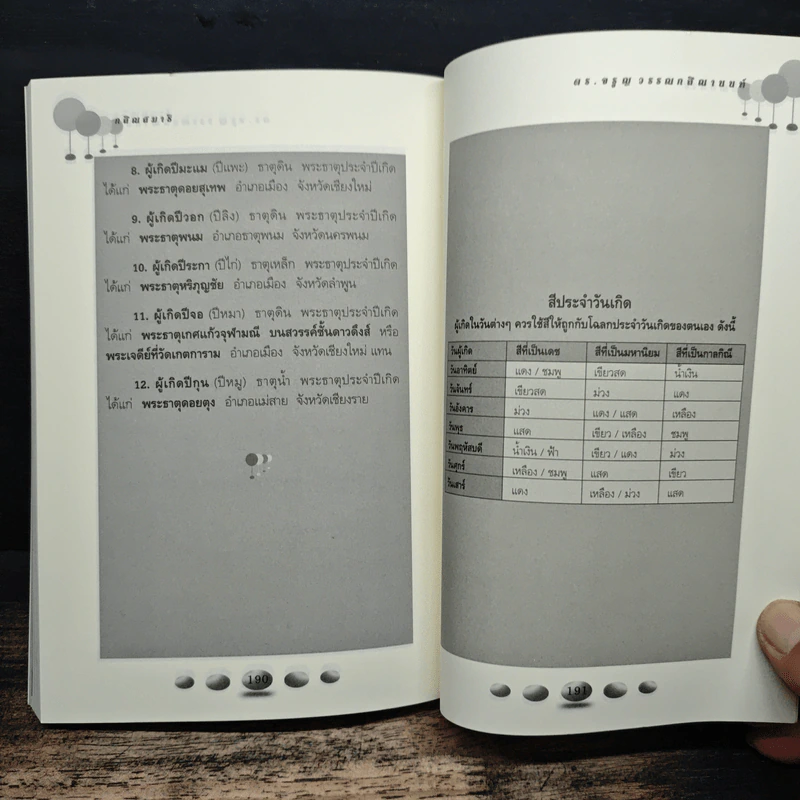 กสิณสมาธิ
8. ผู้เกิดปีมะแม (ปีแพะ) ธาตุดิน พระธาตุประจำปีเกิด
ได้แก่ พระธาตุดอยสุเทพ อำเภอเมือง จังหวัดเชียงใหม่
9. ผู้เกิดปีวอก (ปีลิง) ธาตุดิน พระธาตุประจำปีเกิด
ได้แก่ พระธาตุพนม อำเภอธาตุพนม จังหวัดนครพนม
10. ผู้เกิดปีระกา (ปีไก่) ธาตุเหล็ก พระธาตุประจำปีเกิด
ได้แก่ พระธาตุหริภุญชัย อำเภอเมือง จังหวัดลำพูน
11. ผู้เกิดปีจอ (ปีหมา) ธาตุดิน พระธาตุประจำปีเกิด
ได้แก่ พระธาตุเกศแก้วจุฬามณี บนสวรรค์ชั้นดาวดึงส์ หรือ
พระเจดีย์ที่วัดเกตการาม อำเภอเมือง จังหวัดเชียงใหม่ แทน
12. ผู้เกิดปีกุน (ปีหมู) ธาตุน้ำ พระธาตุประจำปีเกิด
ได้แก่ พระธาตุดอยตุง อำเภอแม่สาย จังหวัดเชียงราย
190
ดร. จรูญ วรรณกสิณานนท์
สีประจำวันเกิด
ผู้เกิดในวันต่างๆ ควรใช้สีให้ถูกกับโฉลกประจำวันเกิดของตนเอง ดังนี้
วันผู้เกิด สีที่เป็นเดช สีที่เป็นมหานิยม สีที่เป็นกาลกิณี
วันอาทิตย์ แดง / ชมพู เขียวสด น้ำเงิน
วันจันทร์ เขียวสด ม่วง แดง
วันอังคาร ม่วง แดง / แสด เหลือง
วันพุธ แสด เขียว / เหลือง ชมพู
วันพฤหัสบดี น้ำเงิน / ฟ้า เขียว / แดง ม่วง
วันศุกร์ เหลือง / ชมพู แสด เขียว
วันเสาร์ แดง เหลือง / ม่วง แสด
191